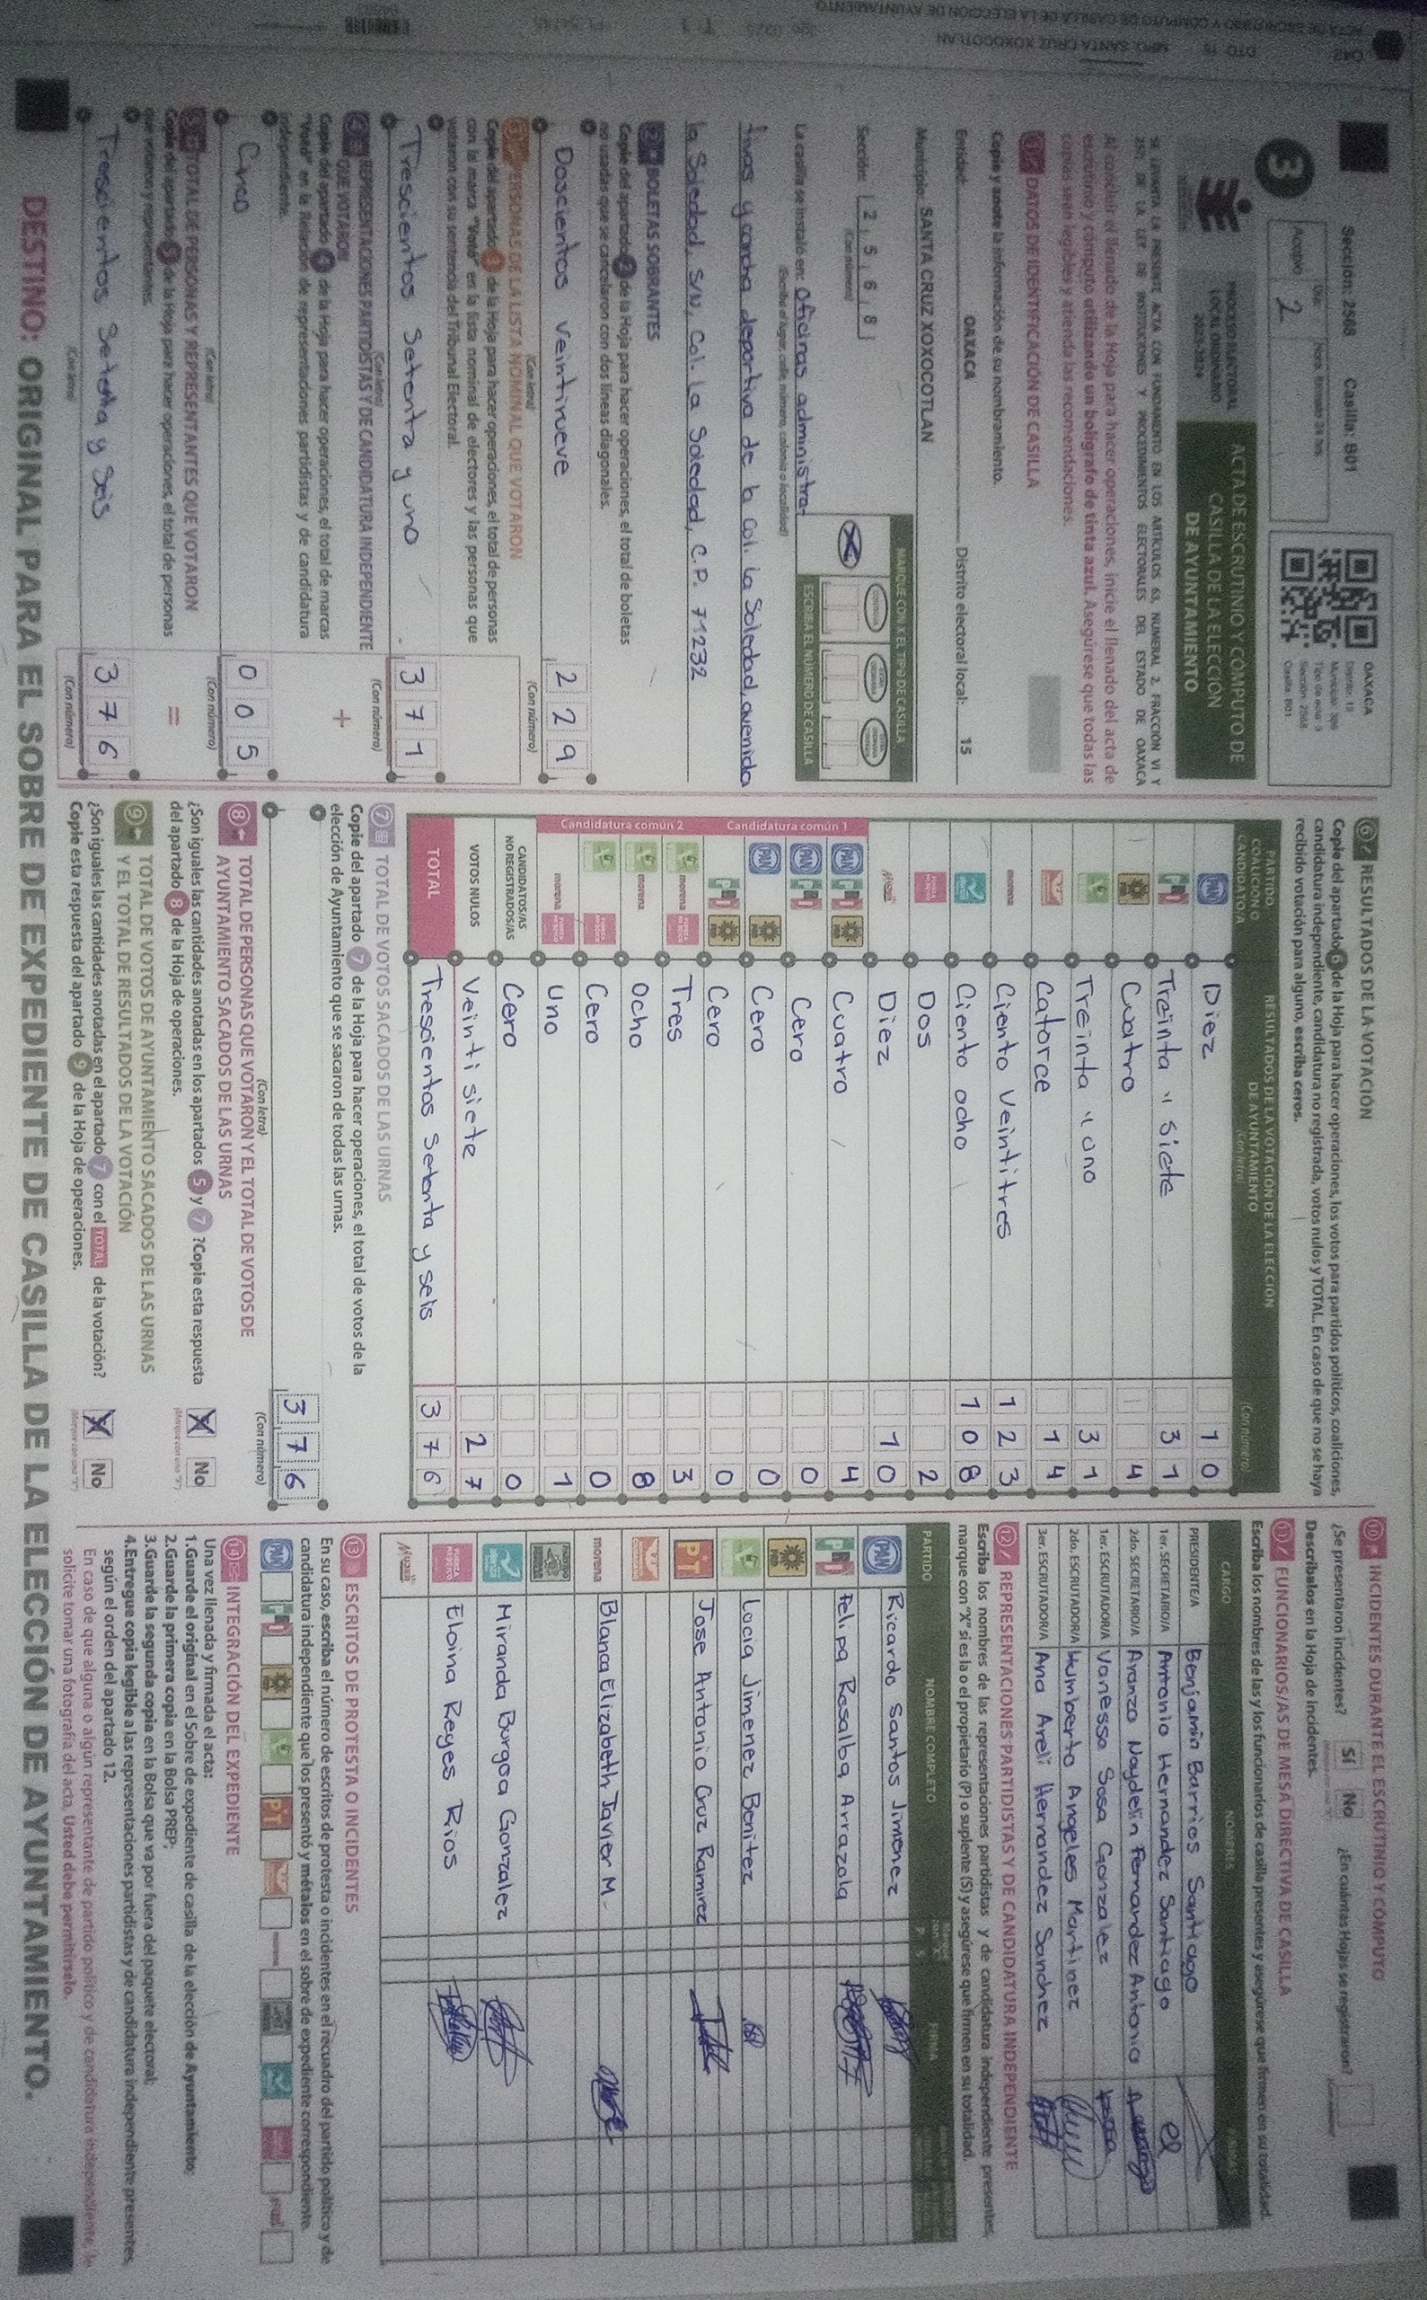 Sección: 2568 Casilla: B01
Acopio 2
3
OAXACA
Distrito: 15
Sección: 2568
Casilla: B01
PROCESO ELECTORAL
LOCAL ORDINARIO
2023-2024
ACTA DE ESCRUTINIO Y CÓMPUTO DE
CASILLA DE LA ELECCIÓN
DE AYUNTAMIENTO
SE LEVANTA LA PRESENTE ACTA CON FUNDAMENTO EN LOS ARTÍCULOS 63, NUMERAL 2, FRACCIÓN VI Y
257; DE LA LEY DE INSTITUCIONES Y PROCEDIMIENTOS ELECTORALES DEL ESTADO DE OAXACA
Al concluir el llenado de la Hoja para hacer operaciones, inicie el llenado del acta de
escrutinio y cómputo utilizando un bolígrafo de tinta azul. Asegúrese que todas las
copias sean legibles y atienda las recomendaciones.
1 DATOS DE IDENTIFICACIÓN DE CASILLA
Copie y anote la información de su nombramiento.
Entidad: OAXACA Distrito electoral local: 15
Municipio: SANTA CRUZ XOXOCOTLAN
Sección: 2 5 6 8
(Con número)
MARQUE CON X EL TIPO DE CASILLA
ESCRIBA EL NÚMERO DE CASILLA
La casilla se instaló en: Oficinas administra-
(Escriba el lugar, calle, número, colonia o localidad)
tivas y cancha deportiva de la Col. la Soledad, avenida
la Soledad, S/N, Col. La Soledad, C.P. 71232
2 BOLETAS SOBRANTES
Copie del apartado 2 de la Hoja para hacer operaciones, el total de boletas
no usadas que se cancelaron con dos líneas diagonales.
Doscientos veintinueve 2 2 9
(Con letra) (Con número)
3 PERSONAS DE LA LISTA NOMINAL QUE VOTARON
Copie del apartado 3 de la Hoja para hacer operaciones, el total de personas
con la marca "Votó" en la lista nominal de electores y las personas que
votaron con su sentencia del Tribunal Electoral.
Trescientos Setenta y uno 3 7 1
(Con letra) (Con número)
4 REPRESENTACIONES PARTIDISTAS Y DE CANDIDATURA INDEPENDIENTE
QUE VOTARON +
Copie del apartado 4 de la Hoja para hacer operaciones, el total de marcas
"Votó" en la Relación de representaciones partidistas y de candidatura
independiente.
Cinco 0 0 5
(Con letra) (Con número)
5 TOTAL DE PERSONAS Y REPRESENTANTES QUE VOTARON =
Copie del apartado 5 de la Hoja para hacer operaciones, el total de personas
que votaron y representantes.
Trescientos Setenta y Seis 3 7 6
(Con letra) (Con número)
6 RESULTADOS DE LA VOTACIÓN
Copie del apartado 6 de la Hoja para hacer operaciones, los votos para partidos políticos, coaliciones,
candidatura independiente, candidatura no registrada, votos nulos y TOTAL. En caso de que no se haya
recibido votación para alguno, escriba ceros.
PARTIDO, COALICIÓN O CANDIDATO/A
RESULTADOS DE LA VOTACIÓN DE LA ELECCIÓN DE AYUNTAMIENTO
(Con letra) (Con número)
PAN Diez 1 0
PRI Treinta y Siete 3 7
PRD Cuatro 4
Treinta y uno 3 1
Catorce 1 4
morena Ciento veintitres 1 2 3
Ciento ocho 1 0 8
Dos 2
Diez 1 0
Candidatura común 1
PAN PRI PRD Cuatro 4
PAN PRI Cero 0
PAN PRD Cero 0
PRI PRD Cero 0
Candidatura común 2
morena Tres 3
morena Ocho 8
Cero 0
morena Uno 1
CANDIDATOS/AS NO REGISTRADOS/AS Cero 0
VOTOS NULOS Veintisiete 2 7
TOTAL Trescientos Setenta y seis 3 7 6
7 TOTAL DE VOTOS SACADOS DE LAS URNAS
Copie del apartado 7 de la Hoja para hacer operaciones, el total de votos de la
elección de Ayuntamiento que se sacaron de todas las urnas.
3 7 6
(Con letra) (Con número)
8 TOTAL DE PERSONAS QUE VOTARON Y EL TOTAL DE VOTOS DE
AYUNTAMIENTO SACADOS DE LAS URNAS
¿Son iguales las cantidades anotadas en los apartados 5 y 7 ?Copie esta respuesta
del apartado 8 de la Hoja de operaciones.
No
9 TOTAL DE VOTOS DE AYUNTAMIENTO SACADOS DE LAS URNAS
Y EL TOTAL DE RESULTADOS DE LA VOTACIÓN
¿Son iguales las cantidades anotadas en el apartado 7 con el TOTAL de la votación?
Copie esta respuesta del apartado 9 de la Hoja de operaciones.
No
10 INCIDENTES DURANTE EL ESCRUTINIO Y CÓMPUTO
¿Se presentaron incidentes? Sí No ¿En cuántas Hojas se registraron?
Descríbalos en la Hoja de incidentes.
11 FUNCIONARIOS/AS DE MESA DIRECTIVA DE CASILLA
Escriba los nombres de las y los funcionarios de casilla presentes y asegúrese que firmen en su totalidad.
CARGO NOMBRES FIRMAS
PRESIDENTE/A Benjamin Barrios Santiago
1er. SECRETARIO/A Antonio Hernandez Santiago
2do. SECRETARIO/A Aranza Naydelin Fernandez Antonio
1er. ESCRUTADOR/A Vanessa Sosa Gonzalez
2do. ESCRUTADOR/A Humberto Angeles Martinez
3er. ESCRUTADOR/A Ana Areli Hernandez Sanchez
12 REPRESENTACIONES PARTIDISTAS Y DE CANDIDATURA INDEPENDIENTE
Escriba los nombres de las representaciones partidistas y de candidatura independiente presentes,
marque con "X" si es la o el propietario (P) o suplente (S) y asegúrese que firmen en su totalidad.
PARTIDO NOMBRE COMPLETO P S FIRMA
PAN Ricardo Santos Jimenez
PRI Felipa Rosalba Arrazola
PRD
Lucia Jimenez Benitez
PT Jose Antonio Cruz Ramirez
morena Blanca Elizabeth Javier M
Miranda Burgoa Gonzalez
Eloina Reyes Rios
13 ESCRITOS DE PROTESTA O INCIDENTES
En su caso, escriba el número de escritos de protesta o incidentes en el recuadro del partido político y de
candidatura independiente que los presentó y métalos en el sobre de expediente correspondiente.
14 INTEGRACIÓN DEL EXPEDIENTE
Una vez llenada y firmada el acta:
1.Guarde el original en el Sobre de expediente de casilla de la elección de Ayuntamiento;
2.Guarde la primera copia en la Bolsa PREP;
3.Guarde la segunda copia en la Bolsa que va por fuera del paquete electoral;
4.Entregue copia legible a las representaciones partidistas y de candidatura independiente presentes,
según el orden del apartado 12.
En caso de que alguna o algún representante de partido político y de candidatura independiente, le
solicite tomar una fotografía del acta, Usted debe permitírselo.
DESTINO: ORIGINAL PARA EL SOBRE DE EXPEDIENTE DE CASILLA DE LA ELECCIÓN DE AYUNTAMIENTO.